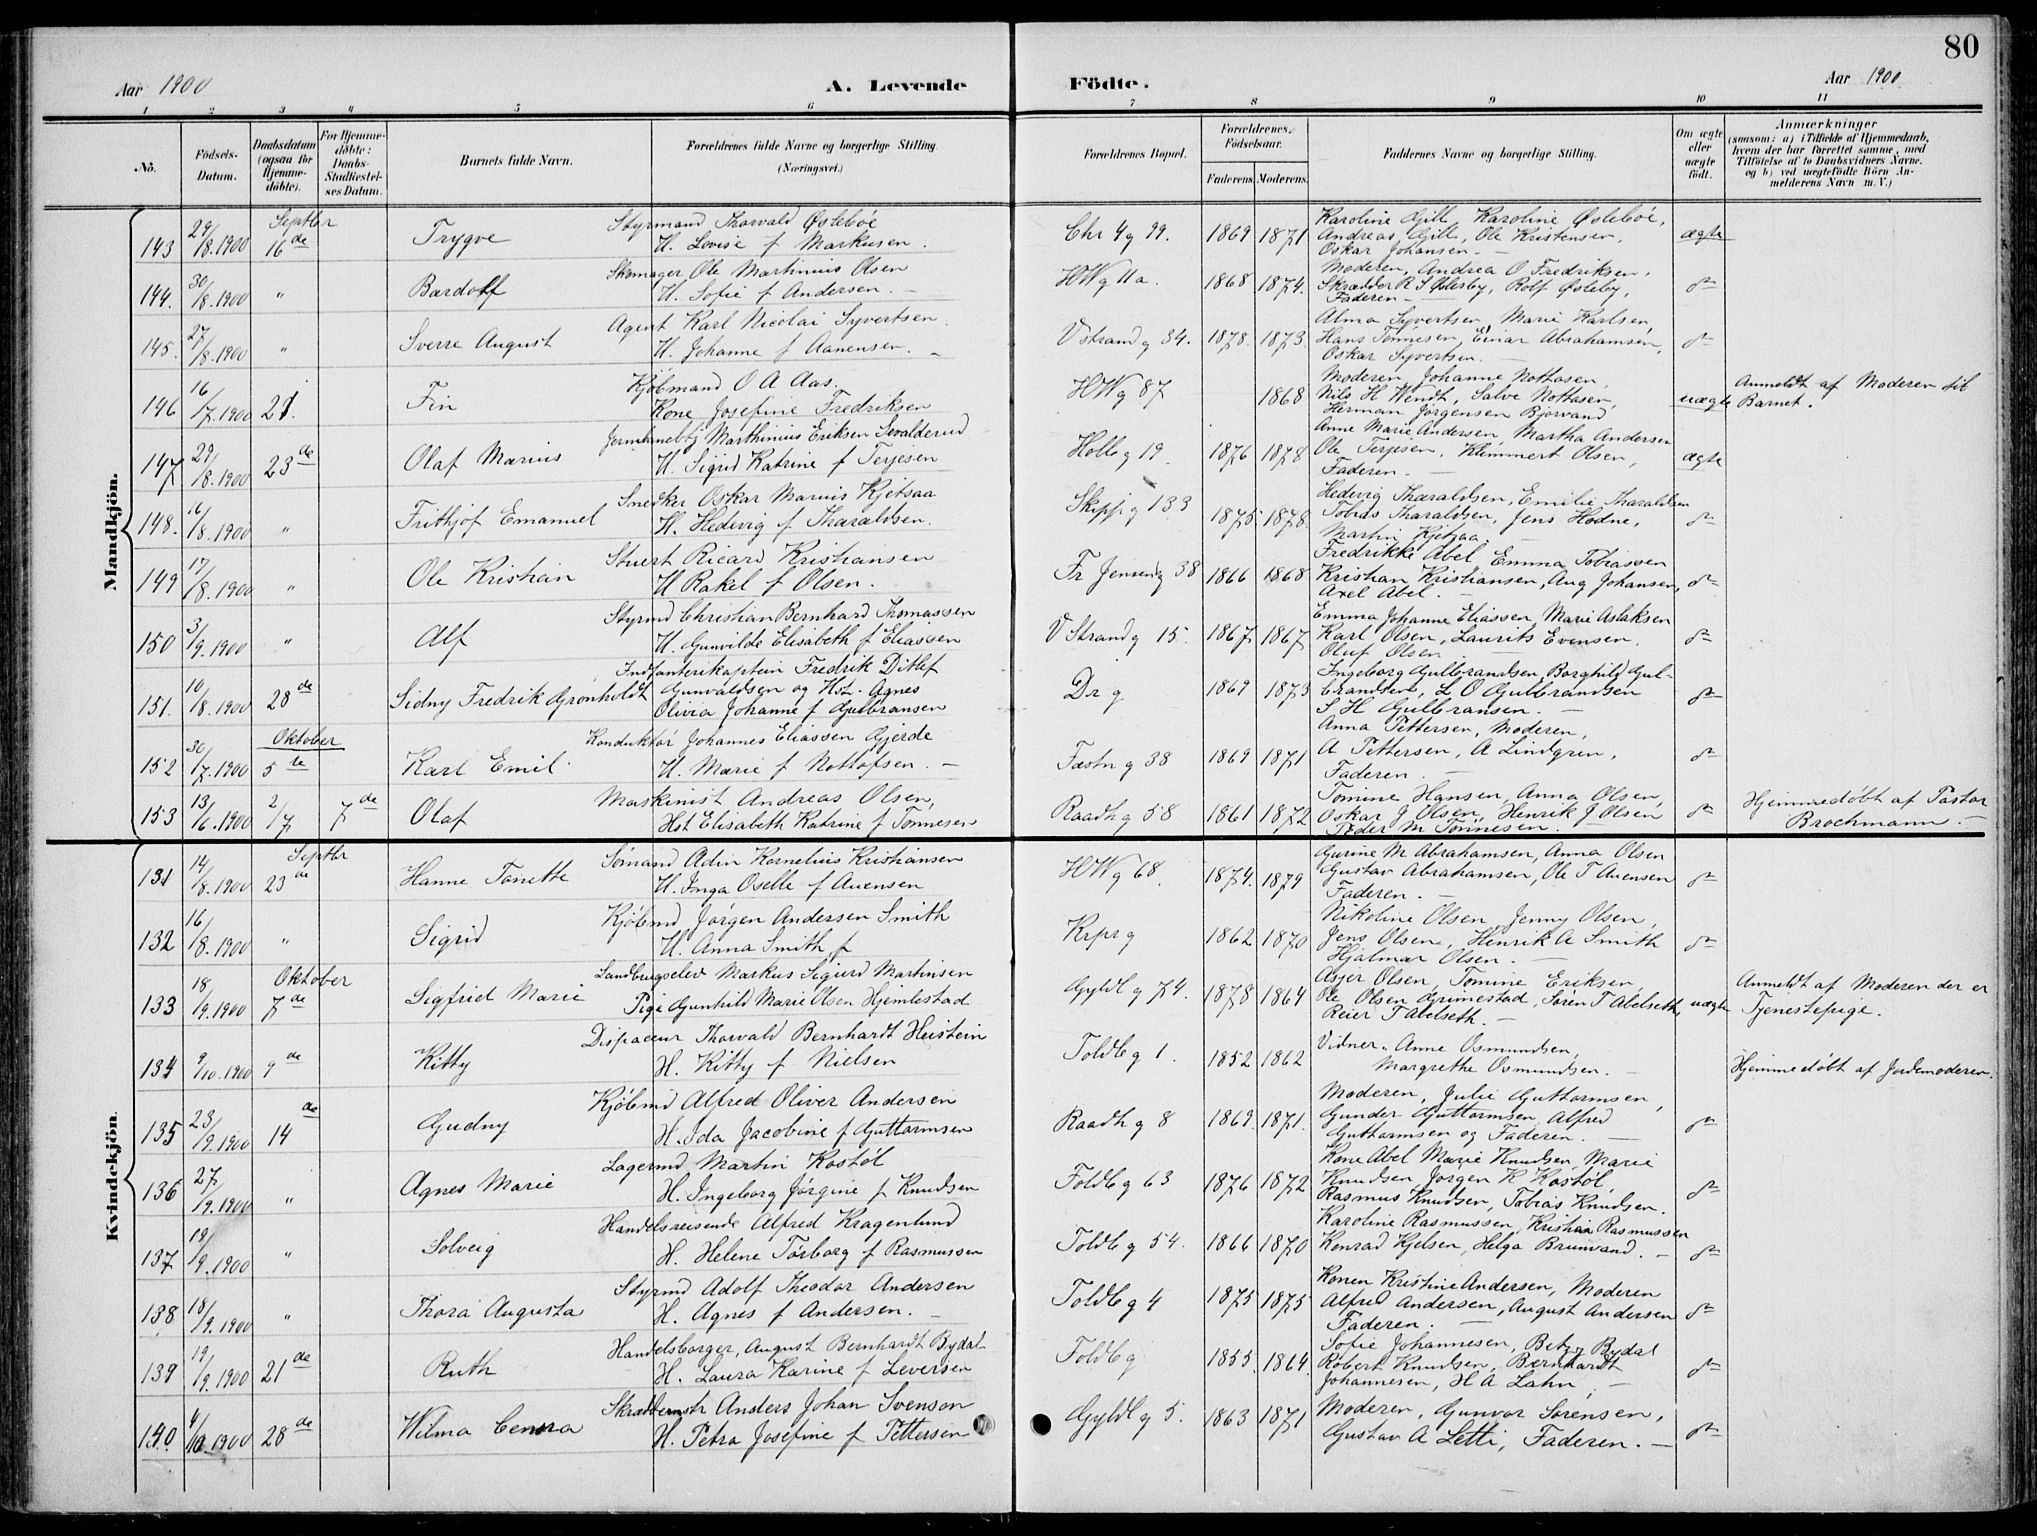 80
Aar 1900
A. Levende Födte.
Aar 1900.
1 2 3 4 5 6 7 8 9 10 11
No.
Födsels-Datum.
Daabsdatum (ogsaa for Hjemme-döbte).
For Hjemme-döbte: Daabs-Stadfæstel-ses Datum.
Barnets fulde Navn.
Forældrenes fulde Navne og borgerlige Stilling. (Næringsvei.)
Forældrenes Bopæl.
Forældrenes Födselsaar.
Faderens. Moderens.
Faddernes Navne og borgerlige Stilling.
Om ægte eller uægte födt.
Anmærkninger
(saasom: a) i Tilfælde af Hjemmedaab, hvem der har forrettet samme, med Tilföielse af to Daabsvidners Navne. og b) ved uægtefödte Börn An-melderens Navn m. V.)
Mandkjön.
Septbr
143 29/8.1900 16de Trygve Styrmand Thorvald Østebøe H. Lovise f Markusen. Chr 4 g 99. 1869 1871 Karoline Gill, Karoline Østebøe, Andreas Gill, Ole Kristensen, Oskar Johansen. — ægte
144. 30/8.1900 " Bardolf Skomager Ole Martinius Olsen H. Sofie f Andersen. — HW g 11a. 1868 1874. Moderen, Andrea O Fredriksen, Skrædder R S Østeby, Rolf Østeby, Faderen — do
145. 27/8.1900 " Sverre August Agent Karl Nicolai Syvertsen. H. Johanne f Aanensen. — V strand g 34. 1878. 1873 Alma Syvertsen, Marie Karlsen, Hans Tönnesen, Einar Abrahamsen, Oskar Syvertsen. — do
146 16/7.1900 21. Fin Kjöbmand O A Aas. Kone Josefine Fredriksen HW g 87 1868 Moderen, Johanne Nottosen, Nils H Wendt, Salve Nottosen, Herman Jörgensen Bjorvand uægte Anmeldt af Moderen til Barnet.
147 29/8.1900 23de Olaf Marius Marthinius Eriksen Sevalderud H. Sigrid Katrine f Terjesen Holb g 19. 1876 1878 Anne Marie Andersen, Martha Andersen Ole Terjesen, Klemmert Olsen, Faderen. — ægte
148. 16/8.1900 " Frithjof Emanuel Snedker Oskar Marius Kjetsaa H. Hedevig f Tharaldsen. Skipp g 133 1875 1878. Hedevig Tharaldsen, Emilie Tharaldsen Tobias Tharaldsen, Jens Hodne, Martin Kjetsaa. — do
149 17/8.1900 " Ole Kristian Stuert Ricard Kristiansen H Rakel f Olsen. Fr Jensens g 38 1866 1868 Fredrikke Abel, Emma Tobiassen Kristian Kristiansen, Aug Johansen, Axel Abel. — do
150 3/9.1900 " Alf Styrmd Christian Bernhard Thomassen H. Gunvilde Elisabeth f Eliassen V Strand g 15. 1867. 1867 Emma Johanne Eliassen, Marie Aslaksen Karl Olsen, Laurits Evensen. Oluf Olsen do
151. 10/8.1900 28de Sidny Fredrik Grönholdt Indfanterikaptein Fredrik Ditlef Gunvaldsen og Hst. Agnes Olivia Johanne f Gulbransen Dr g 1869 1873 Ingeborg Gulbrandsen, Borghild Gul-brandsen, L O Gulbrandsen S H Gulbransen. — do
Oktober
152 30/7.1900 5te Karl Emil Konduktör Johannes Eliassen Gjerde H. Marie f Nottofsen. — Fæstn g 38 1869 1871 Anna Pettersen, Moderen, A Pettersen, A Lindgren, Faderen. — do
153 13/6.1900 2/7 7de Olaf Maskinist Andreas Olsen, Hst Elisabeth Katrine f Tönnesen Raadh g 58 1861 1872 Tomine Hansen, Anna Olsen, Oskar J Olsen, Henrik J Olsen Peder M Tönnesen. do Hjemmedöbt af Pastor Brochmann. —
Kvindekjön.
Septbr
131 14/8.1900 23de Hanne Tonette Sömand Adin Kornelius Kristiansen H. Inga Oselle f Auensen HW g 68. 1874. 1879 Gurine M Abrahamsen, Anna Olsen Gustav Abrahamsen, Ole T Auensen Faderen. — do
132 16/8.1900 " Sigrid Kjöbmd Jörgen Andersen Smith H. Anna Smith f Krpr g 1862 1870 Nikoline Olsen, Jenny Olsen, Jens Olsen, Henrik A Smith Hjalmar Olsen. — do
Oktober
133 18/9.1900 7de Sigfried Marie Landbrugselev Markus Sigurd Martinsen Pige Gunhild Marie Olsen Hjemlestad Gyldl g 74. 1878 1864 Asjer Olsen, Tomine Eriksen, Ole Olsen Grimestad, Sören T Abelseth, Reier T Abelseth. — uægte Anmeldt af Moderen der er Tjenestepige.
134 9/10.1900 9de Kitty Dispaceur Thorvald Bernhardt Heistein H. Kitty f Nielsen Toldb g 1. 1852 1862 Vidner. Anne Osmundsen, Margrethe Osmundsen. — Hjemmedöbt af Jordemoderen.
135 23/9.1900 14de Gudny Kjöbmd Alfred Oliver Andersen H. Ida Jacobine f Guttormsen Raadh g 8 1869. 1871. Moderen, Julie Guttormsen, Gunder Guttormsen, Alfred Guttormsen og Faderen. — do
136 27/9.1900 " Agnes Marie Lagermd Martin Kostöl H. Ingeborg Jörgine f Knudsen Toldb g 63 1876 1872 Kone Abel Marie Knudsen, Marie Knudsen, Jörgen K Kostöl, Rasmus Knudsen, Tobias Knudsen. do
137 19/9.1900 " Solveig Handelsreisende Alfred Kragenlund H. Helene Törborg f Rasmussen Toldb g 54. 1866 1870 Karoline Rasmussen, Kristian Rasmussen Konrad Kjelsen, Helga Brunvand. — do
138 18/9.1900 " Thora Augusta Styrmd Adolf Theodor Andersen H. Agnes f Andersen. — Toldb g 4 1875 1875 Konen Kristine Andersen, Moderen Alfred Andersen, August Andersen Faderen. — do
139 19/9.1900 21de Ruth Handelsborger, August Bernhardt Bydal H. Laura Karine f Leversen Toldb g 1855 1864 Sofie Johannesen, Betzy Bydal Robert Knudsen, Bernhardt Johannesen, H A Lahn, — do
140 4/10 1900 28de Wilma Skræddermstr Anders Johan Svenson H. Petra Josefine f Pettersen Gyldl g 5. 1863 1871 Moderen, Gunvor Sörensen, Gustav A Letti, Faderen. — do